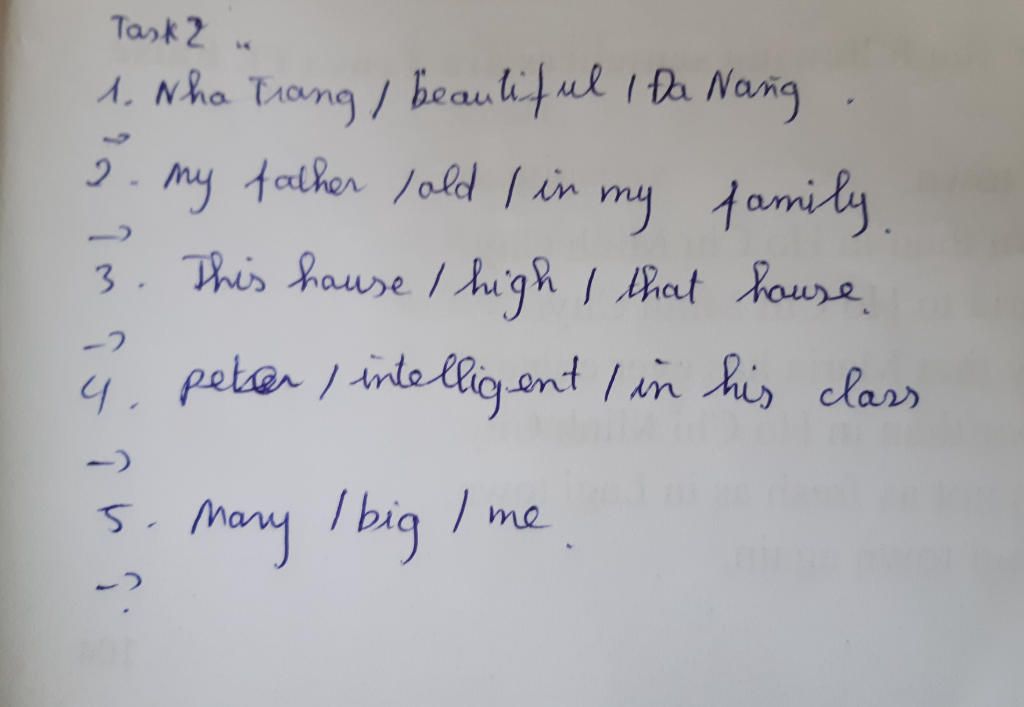 Task 2 ..
1. Nha Trang / beautiful / Đa Nang .
->
2. My father / old / in my family.
->
3. This hause / high / that house.
->
4. peter / intelligent / in his class
->
5. Mary / big / me.
->